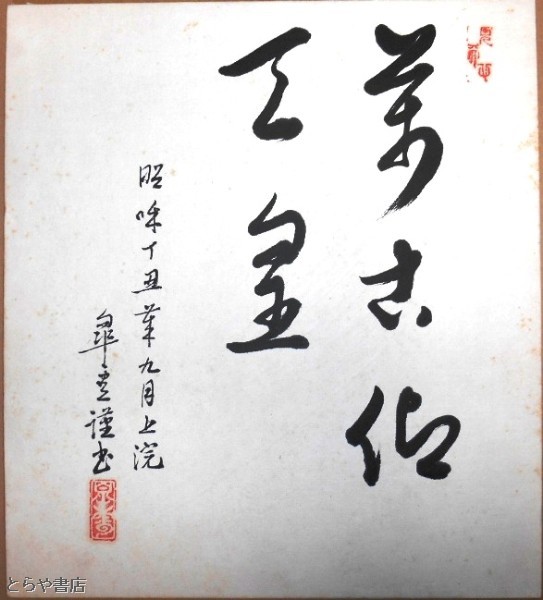 萬古仰
天皇
昭和丁丑菊九月上浣
皐堂謹書
とらや書店